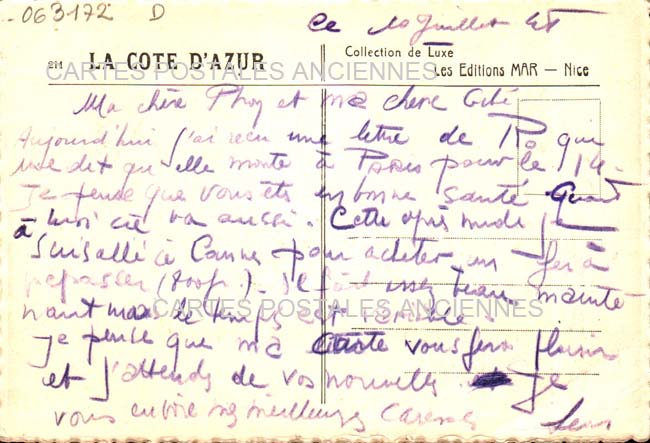 063172 D
Ce 10 Juillet 48
211 LA COTE D'AZUR
Collection de Luxe
Les Editions MAR — Nice
CARTES POSTALES ANCIENNES
Ma chère et ma chère
Aujourd'hui j'ai reçu une lettre de qui
me dit qu'elle monte à Paris pour le 14.
Je pense que vous êts en bonne santé. Quant
à moi ça va aussi. Cette après midi je
suis allé à Cannes pour acheter un fer à
repasser. Il fait assez beau mainte-
nant mais le temps est
CARTES POSTALES ANCIENNES
Je pense que ma Carte vous fera plaisir
et j'attends de vos nouvelles. Je
vous envoie mes meilleures Caresses